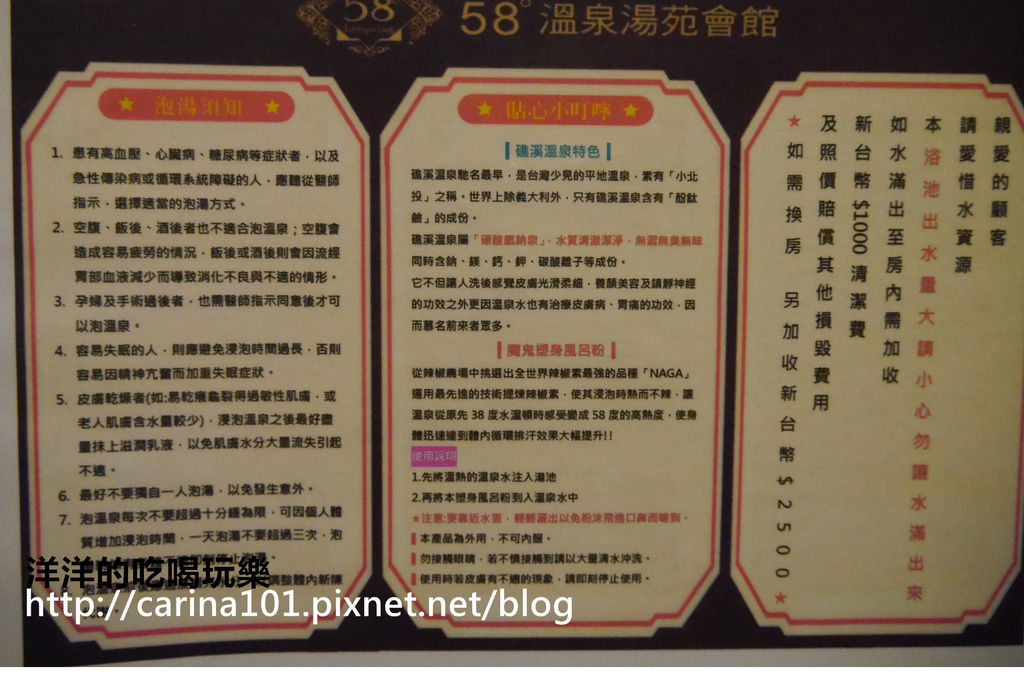 58
58°溫泉湯苑會館
★ 泡湯須知 ★
1. 患有高血壓、心臟病、糖尿病等症狀者，以及
急性傳染病或循環系統障礙的人，應聽從醫師
指示，選擇適當的泡湯方式。
2. 空腹、飯後、酒後者也不適合泡溫泉；空腹會
造成容易疲勞的情況，飯後或酒後則會因流經
胃部血液減少而導致消化不良與不適的情形。
3. 孕婦及手術過後者，也需醫師指示同意後才可
以泡溫泉。
4. 容易失眠的人，則應避免浸泡時間過長，否則
容易因精神亢奮而加重失眠症狀。
5. 皮膚乾燥者(如:易乾癢龜裂得過敏性肌膚，或
老人肌膚含水量較少)，浸泡溫泉之後最好盡
量抹上滋潤乳液，以免肌膚水分大量流失引起
不適。
6. 最好不要獨自一人泡湯，以免發生意外。
7. 泡溫泉每次不要超過十分鐘為限，可因個人體
質增加浸泡時間，一天泡湯不要超過三次，泡
調整體內新陳
★ 貼心小叮嚀 ★
礁溪溫泉特色
礁溪溫泉馳名最早，是台灣少見的平地溫泉，素有「小北
投」之稱。世界上除義大利外，只有礁溪溫泉含有「酚鈦
鹼」的成份。
礁溪溫泉屬「碳酸氫鈉泉」，水質清澈潔淨，無澀無臭無味
同時含鈉、鎂、鈣、鉀、碳酸離子等成份。
它不但讓人洗後感覺皮膚光滑柔細，養顏美容及鎮靜神經
的功效之外更因溫泉水也有治療皮膚病、胃痛的功效，因
而慕名前來者眾多。
魔鬼塑身風呂粉
從辣椒農場中挑選出全世界辣椒素最強的品種「NAGA」
運用最先進的技術提煉辣椒素，使其浸泡時熱而不辣，讓
溫泉從原先 38 度水溫頓時感受變成 58 度的高熱度，使身
體迅速達到體內循環排汗效果大幅提升!!
使用說明
1.先將溫熱的溫泉水注入湯池
2.再將本塑身風呂粉到入溫泉水中
★注意:要靠近水面，輕輕灑出以免粉沫飛進口鼻而嗆到。
本產品為外用，不可內服。
勿接觸眼睛，若不慎接觸到請以大量清水沖洗。
使用時若皮膚有不適的現象，請即刻停止使用。
親愛的顧客
請愛惜水資源
本浴池出水量大請小心勿讓水滿出來
如水滿出至房內需加收
新台幣$1000清潔費
及照價賠償其他損毀費用
★如需換房 另加收新台幣$2500★
洋洋的吃喝玩樂
http://carina101.pixnet.net/blog